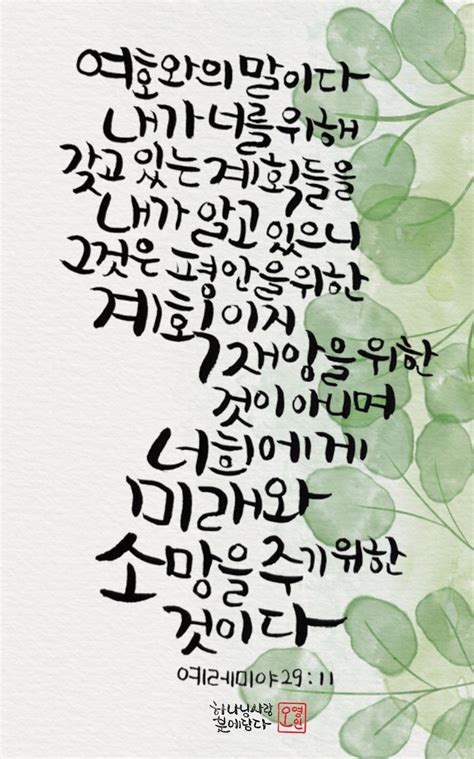 여호와의 말이다
내가 너를 위해
갖고 있는 계획들을
내가 알고 있으니
그것은 평안을 위한
계획이지
재앙을 위한
것이 아니며
너희에게
미래와
소망을 주기 위한
것이다
예레미야 29:11
하나님사랑
붓에담다
오영인